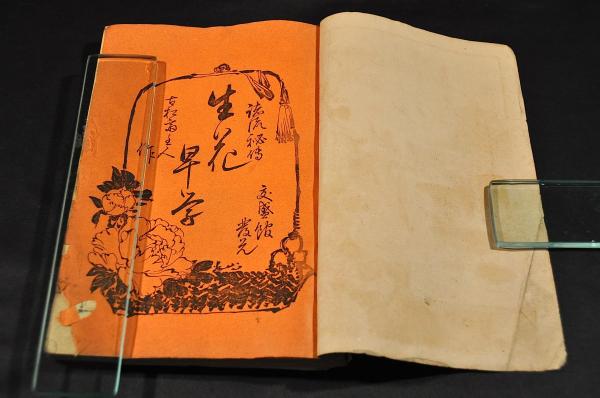 諸流秘傳
交盛館
發兌
生花
早学
古松斎主人
作